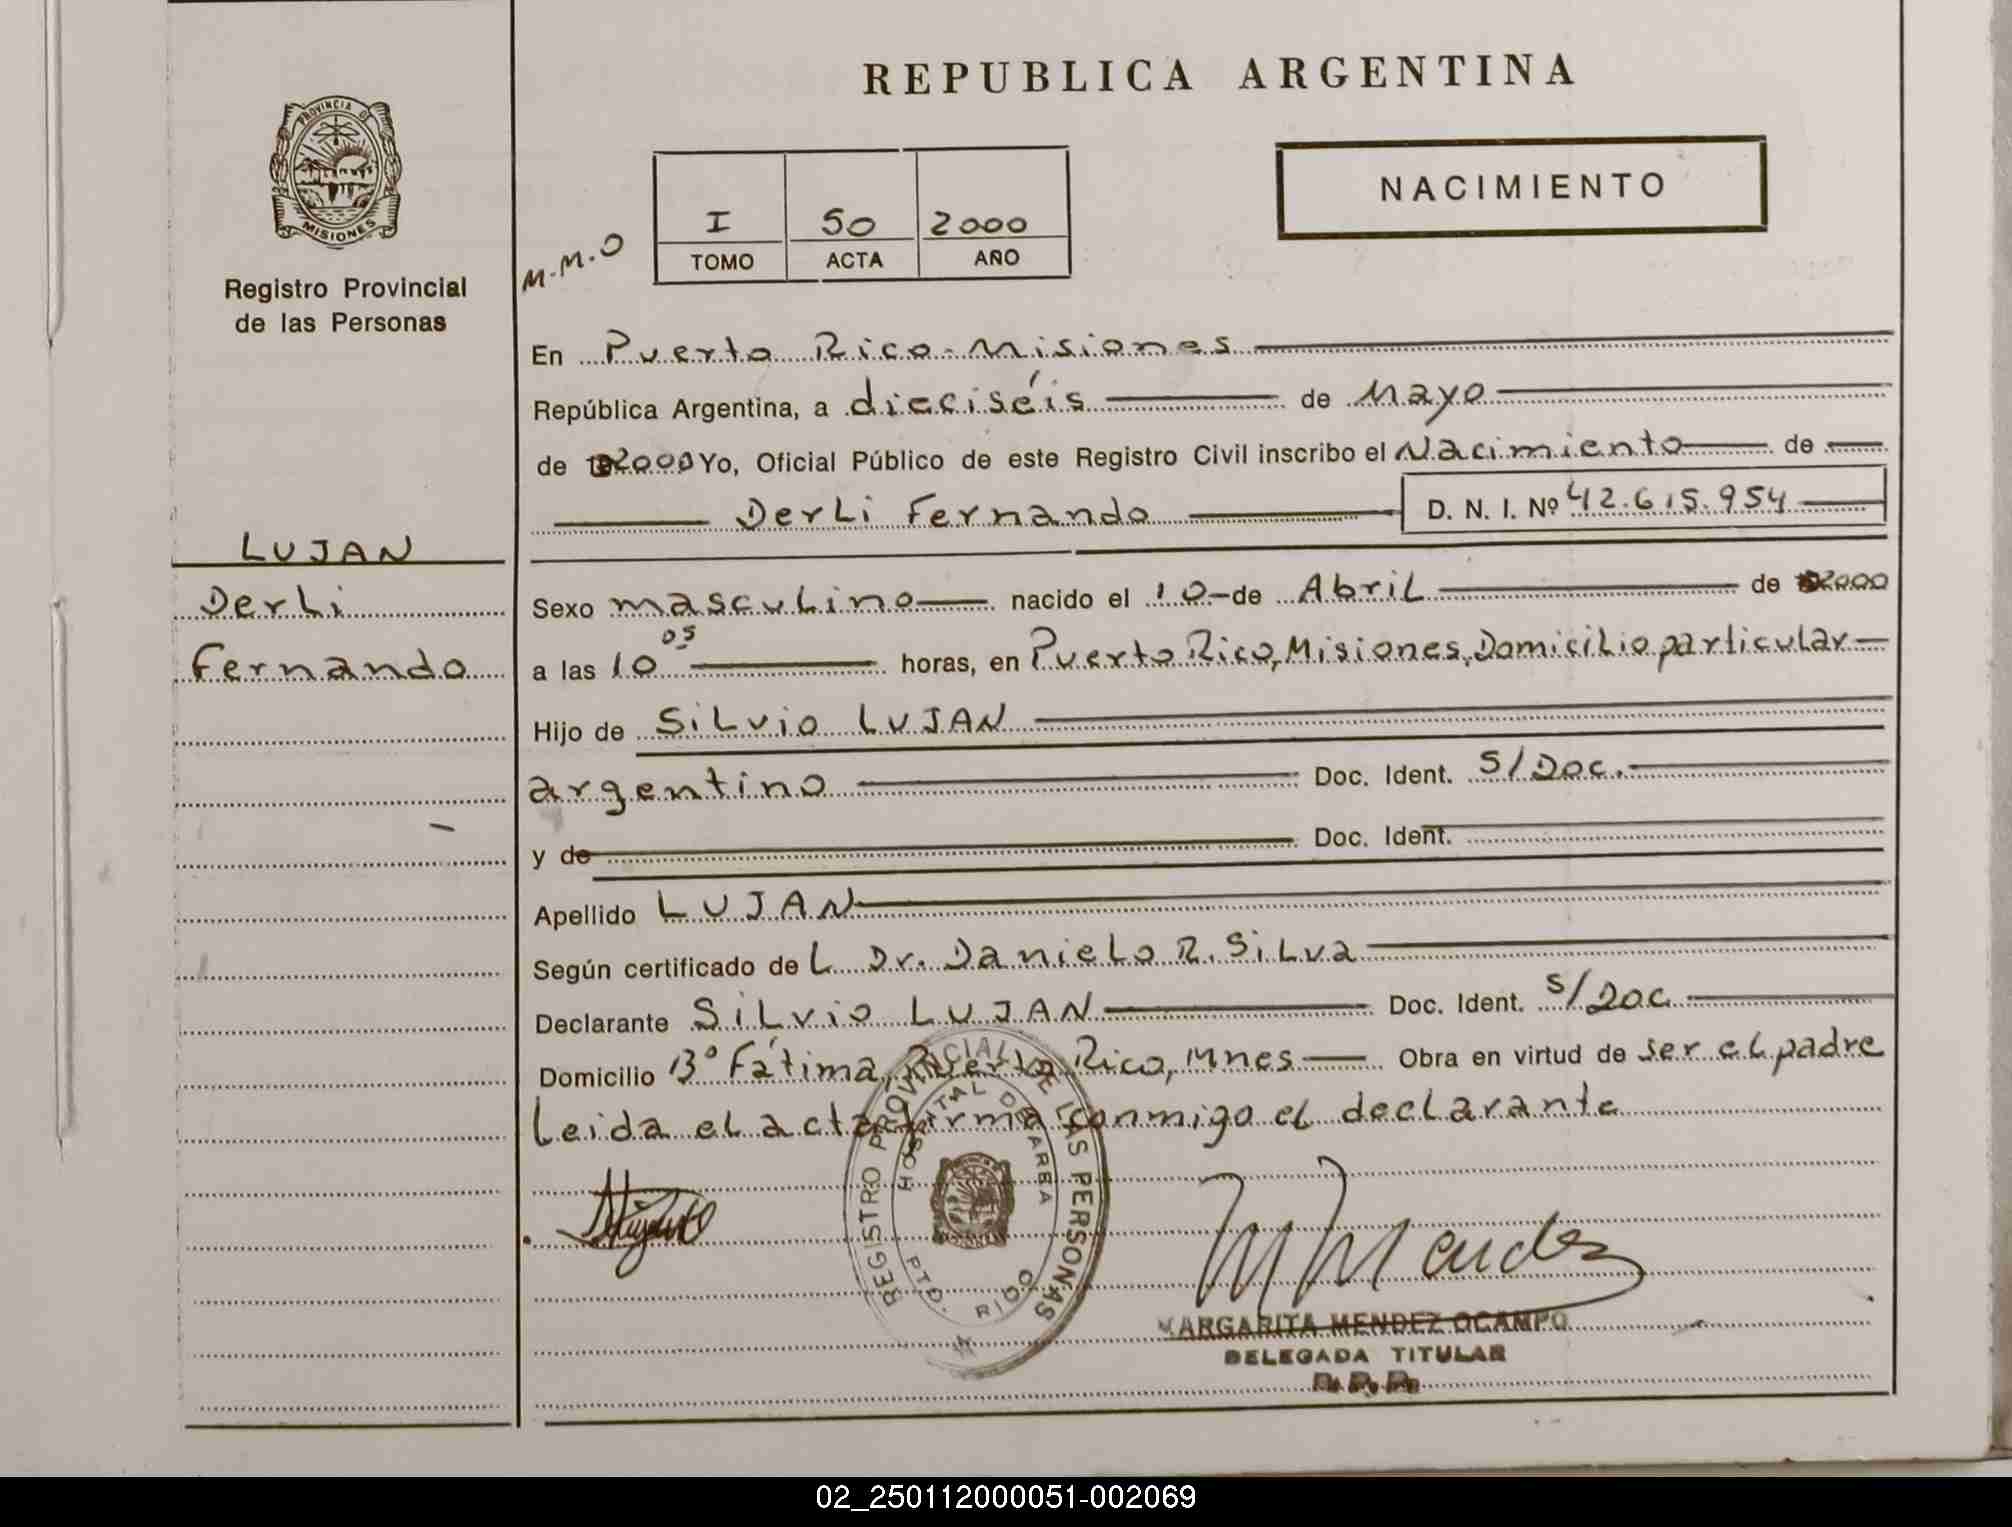 REPUBLICA ARGENTINA
PROVINCIA D
MISIONES
Registro Provincial
de las Personas
NACIMIENTO
I 50 2000
TOMO ACTA AÑO
M.M.O
En Puerto Rico - Misiones
República Argentina, a dieciséis de Mayo
de 2000 Yo, Oficial Público de este Registro Civil inscribo el Nacimiento de
Derli Fernando D. N. I. Nº 42.615.954
LUJAN
Derli
Fernando
Sexo masculino nacido el 10 de Abril de 2000
a las 10 05 horas, en Puerto Rico, Misiones, Domicilio particular
Hijo de Silvio LUJAN
argentino Doc. Ident. S/Doc.
y de Doc. Ident.
Apellido LUJAN
Según certificado del Dr. Danielo R. Silva
Declarante Silvio LUJAN Doc. Ident. S/Doc
Domicilio Bº Fátima, Puerto Rico, Mnes Obra en virtud de ser el padre
Leida el acta firma conmigo el declarante
REGISTRO PROVINCIAL DE LAS PERSONAS
HOSPITAL DE AREA
PTO. RICO
M Mendez
MARGARITA MENDEZ OCAMPO
DELEGADA TITULAR
R. P. P.
02_250112000051-002069